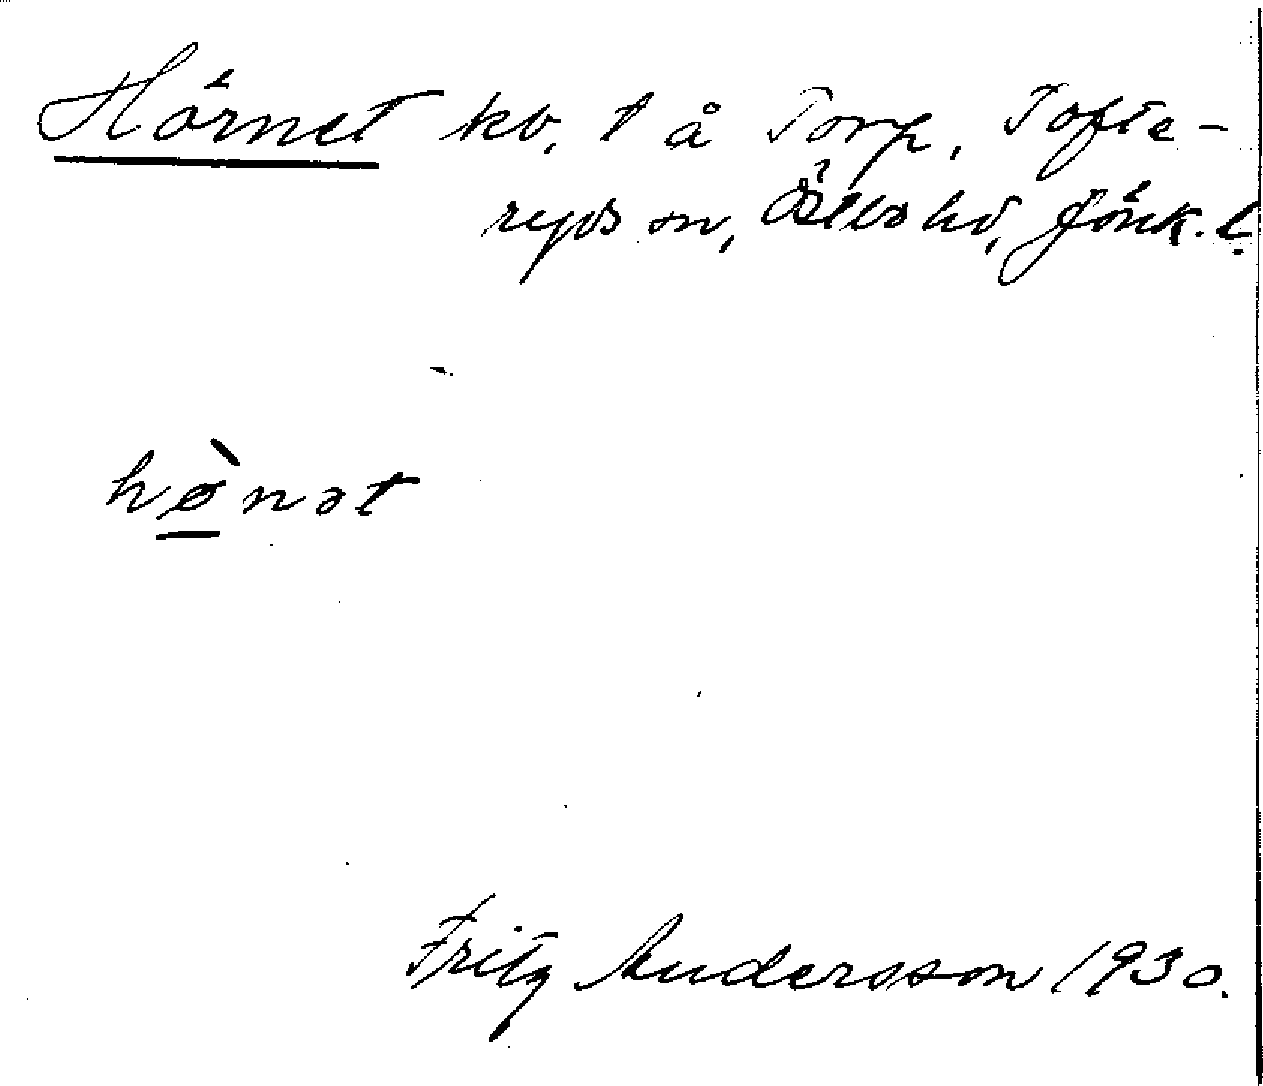 Hörnet kv, t å Torp, Tofte-
ryds sn, Östbo hd, Jönk. l.
hø̀nət
Fritz Andersson 1930.